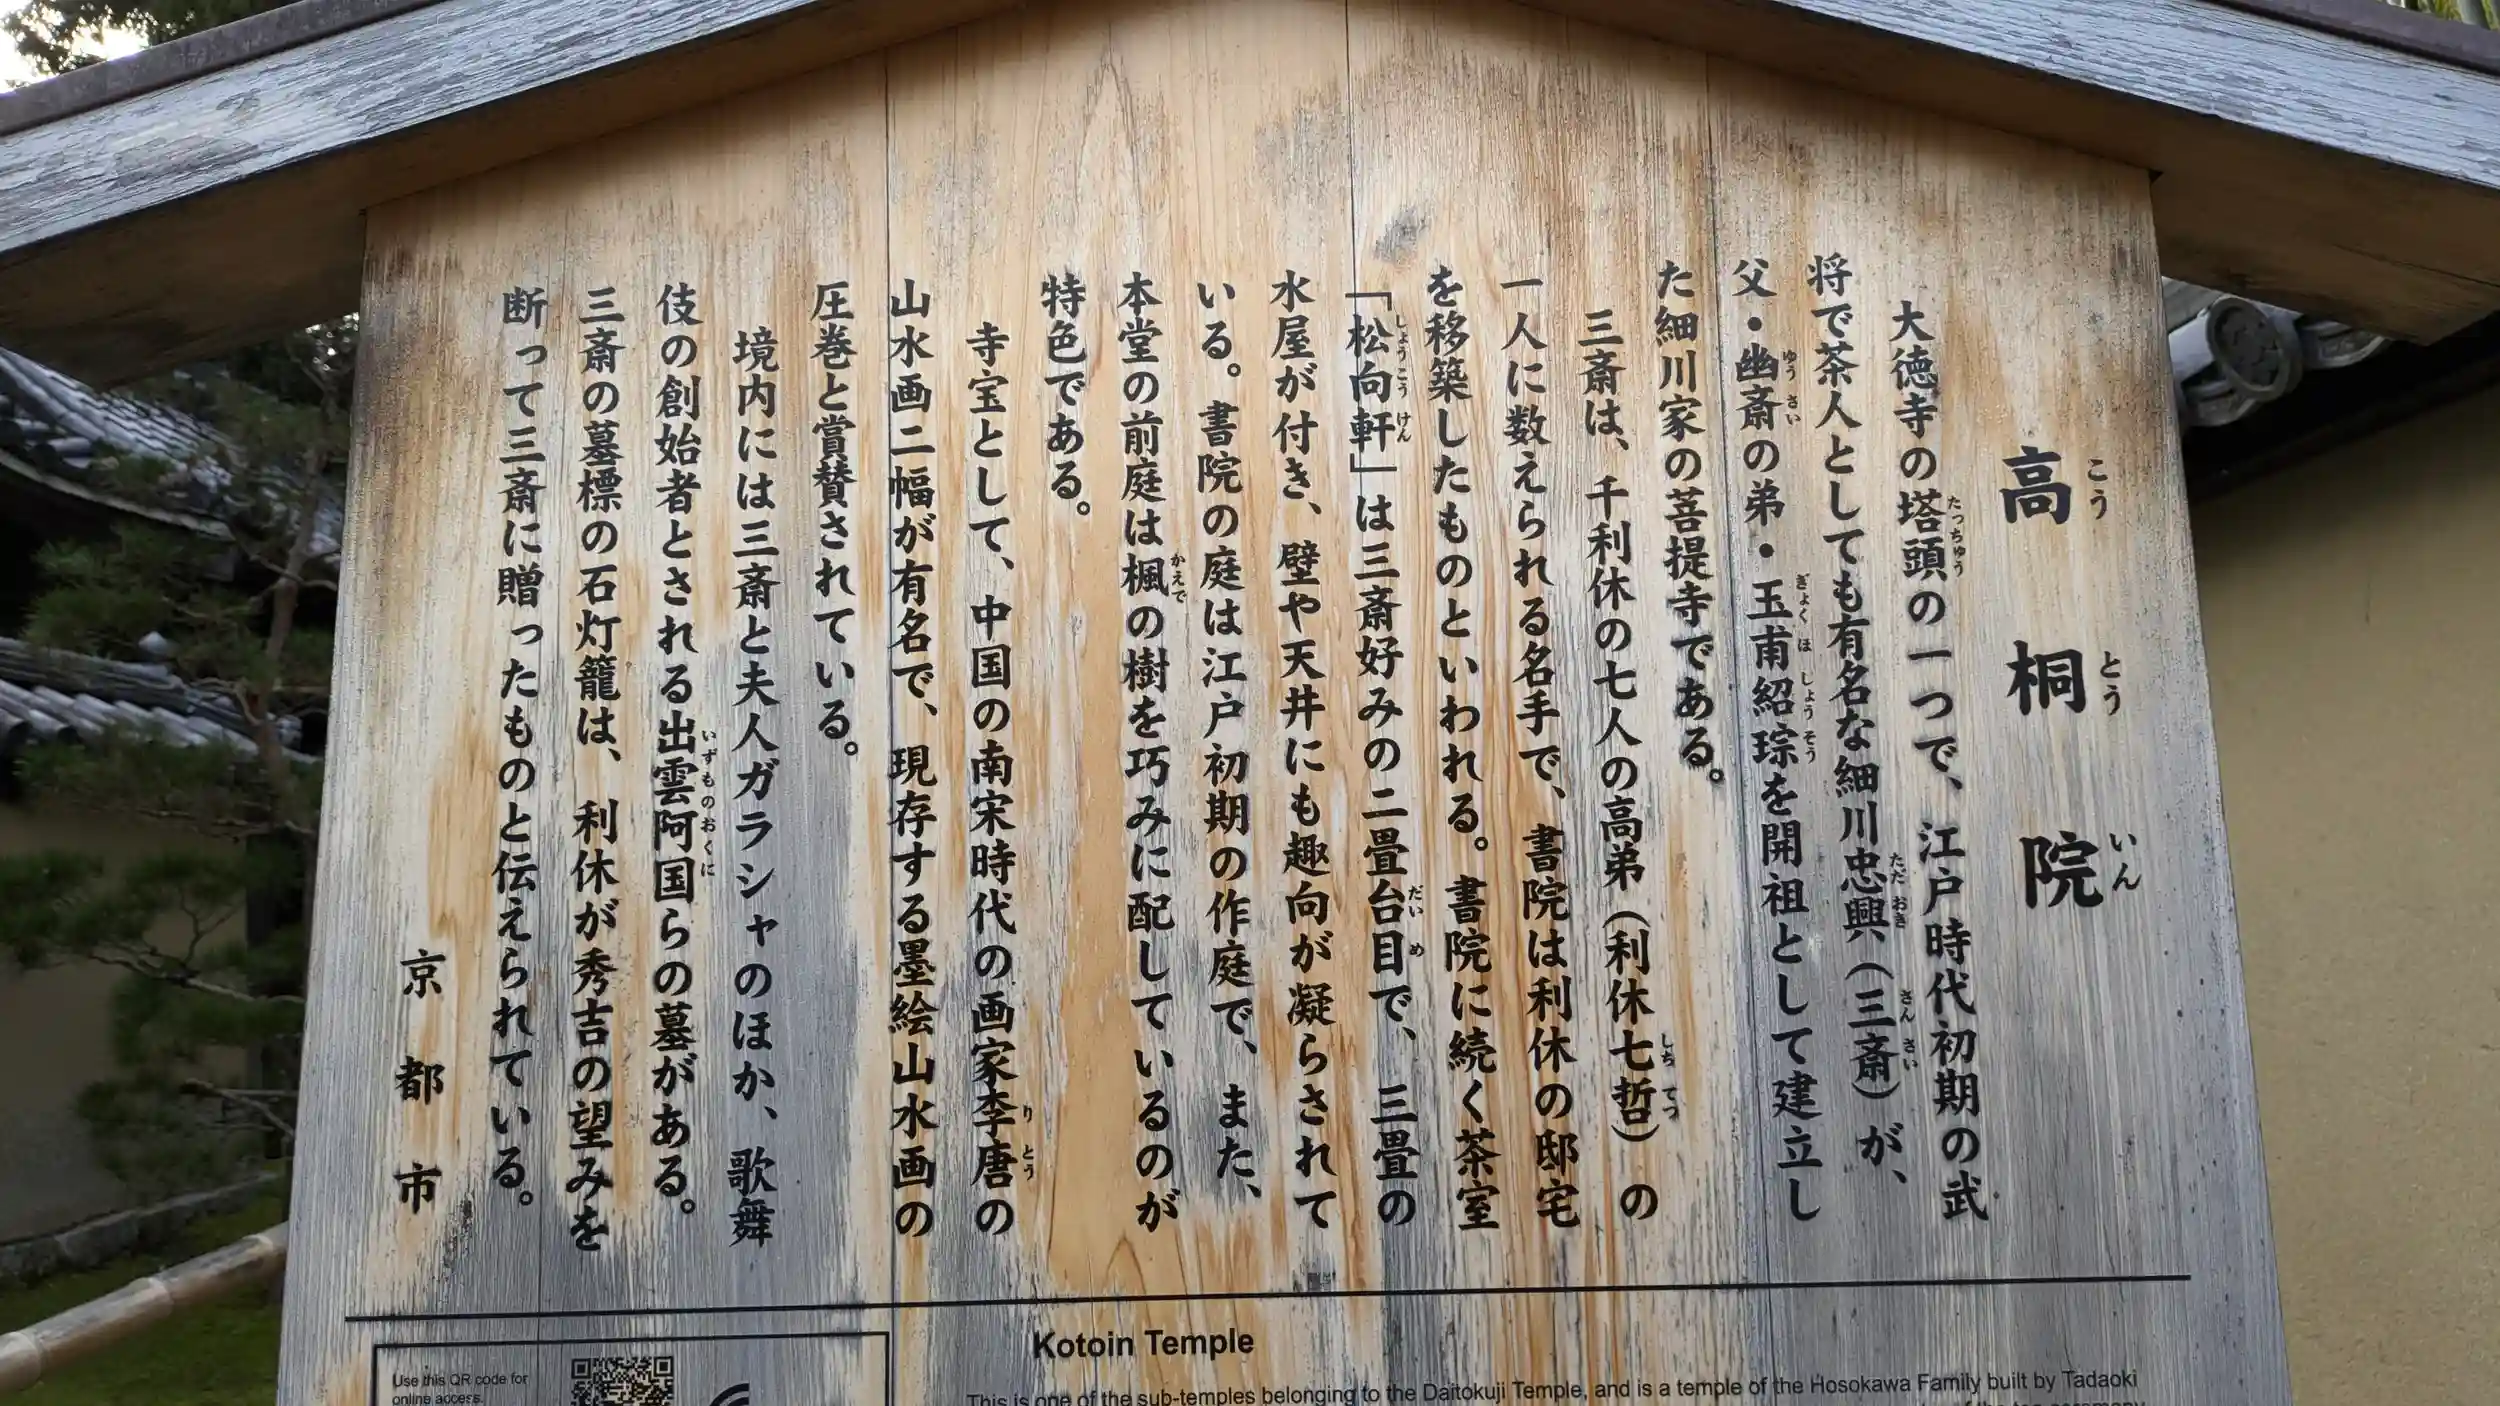 高桐院
こうとういん
大徳寺の塔頭の一つで、江戸時代初期の武
たっちゅう
将で茶人としても有名な細川忠興（三斎）が、
ただおき
さんさい
父・幽斎の弟・玉甫紹琮を開祖として建立し
ゆうさい
ぎょくほしょうそう
た細川家の菩提寺である。
三斎は、千利休の七人の高弟（利休七哲）の
しちてつ
一人に数えられる名手で、書院は利休の邸宅
を移築したものといわれる。書院に続く茶室
「松向軒」は三斎好みの二畳台目で、三畳の
しょうこうけん
だいめ
水屋が付き、壁や天井にも趣向が凝らされて
いる。書院の庭は江戸初期の作庭で、また、
本堂の前庭は楓の樹を巧みに配しているのが
かえで
特色である。
寺宝として、中国の南宋時代の画家李唐の
りとう
山水画二幅が有名で、現存する墨絵山水画の
圧巻と賞賛されている。
境内には三斎と夫人ガラシャのほか、歌舞
伎の創始者とされる出雲阿国らの墓がある。
いずものおくに
三斎の墓標の石灯籠は、利休が秀吉の望みを
断って三斎に贈ったものと伝えられている。
京都市
Kotoin Temple
Use this QR code for
online access.
This is one of the sub-temples belonging to the Daitokuji Temple, and is a temple of the Hosokawa Family built by Tadaoki
of the tea ceremony